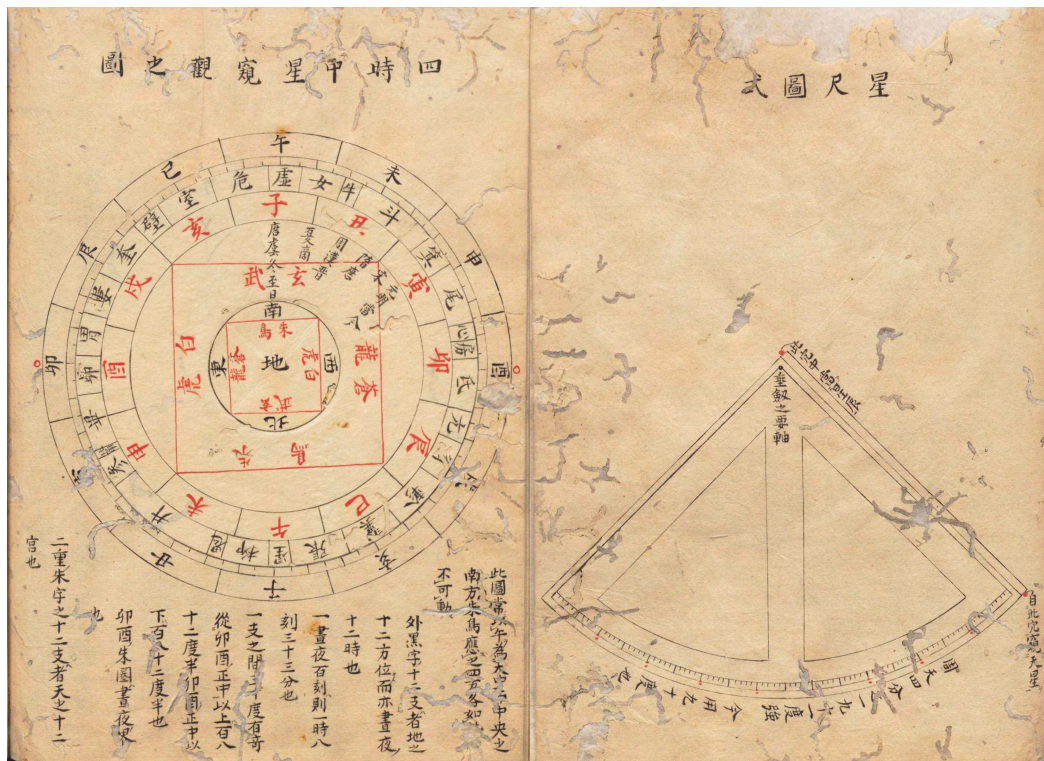 星尺圖式
此穴中當星辰
垂釼之要軸
自此穴窺天星
周天四分一九十一度強
今用九十度也
四時中星窺觀之圖
午
未
申
酉
戌
亥
子
丑
寅
卯
辰
巳
虛
女
牛
斗
箕
尾
心
房
氐
亢
角
軫
翼
張
星
柳
鬼
井
參
觜
畢
昴
胃
婁
奎
壁
室
危
子
丑
寅
卯
辰
巳
午
未
申
酉
戌
亥
唐虞冬至日
夏商
周漢晋
隋唐
宋元明
當今
玄武
蒼龍
朱鳥
白虎
南
西
北
東
朱鳥
白虎
玄武
蒼龍
地
此圖常以午為
中央之
南方朱鳥應之四方各如
不可動
外黑字十二支者地之
十二方位而亦晝夜
十二時也
一晝夜百刻則一時八
刻三十三分也
一支之間三十度有奇
從卯酉正中以上百八
十二度半卯酉正中以
下百八十二度半也
卯酉朱圈晝夜
也
二重朱字之十二支者天之十二
宮也